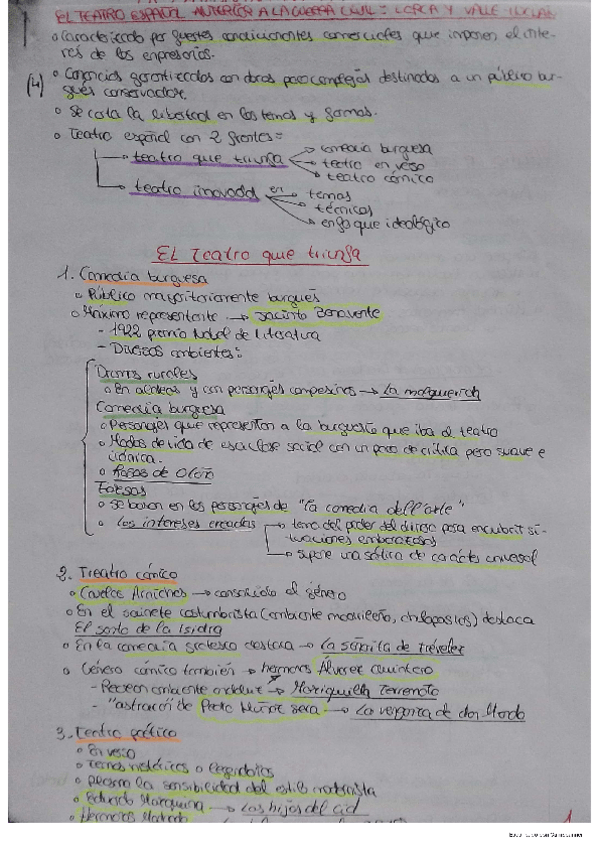 EL TEATRO ESPAÑOL ANTERIOR A LA GUERRA CIVIL: LORCA Y VALLE-INCLÁN
o Caracterizado por fuertes condicionantes comerciales que imponen el inte-
rés de los empresarios.
(4) o Compañías garantizadas con obras poco complejas destinadas a un público bur-
gués conservador.
o Se corta la libertad en los temas y formas.
o Teatro español con 2 frentes:
teatro que triunfa → comedia burguesa
→ teatro en verso
→ teatro cómico
teatro inovador en → temas
→ técnicas
→ enfoque ideológico
EL Teatro que triunfa
1. Comedia burguesa
o Público mayoritariamente burgués
o Máximo representante → Jacinto Benavente
- 1922 premio Nobel de Literatura
- Diversos ambientes:
Dramas rurales
o En aldeas y con personajes campesinos → La malquerida
Comedia burguesa
o Personajes que representan a la burguesía que iba al teatro
o Modos de vida de esa clase social con un poco de crítica pero suave e
irónica.
o Rosas de Otoño
Farsas
o Se basan en los personajes de "la comedia dell'arte"
o Los intereses creados → tema del poder del dinero para encubrir si-
tuaciones embarazosas
→ supone una sátira de carácter universal
2. Treatro cómico
o Carlos Arniches → consolida el género
o En el sainete costumbrista (ambiente madrileño, chulapos/as) destaca
El santo de la Isidra
o En la comedia grotesca destaca → La señorita de Trévelez
o Género cómico también → hermanos Álvarez Quintero
- Recrean ambiente andaluz → Mariquilla Terremoto
- "astracán" de Pedro Muñoz Seca → La venganza de don Mendo
3. Teatro poético
o En verso
o Temas históricos o legendarios
o plasma la sensibilidad del estilo modernista
o Eduardo Marquina → Las hijas del Cid
o Hermanos Machado
1